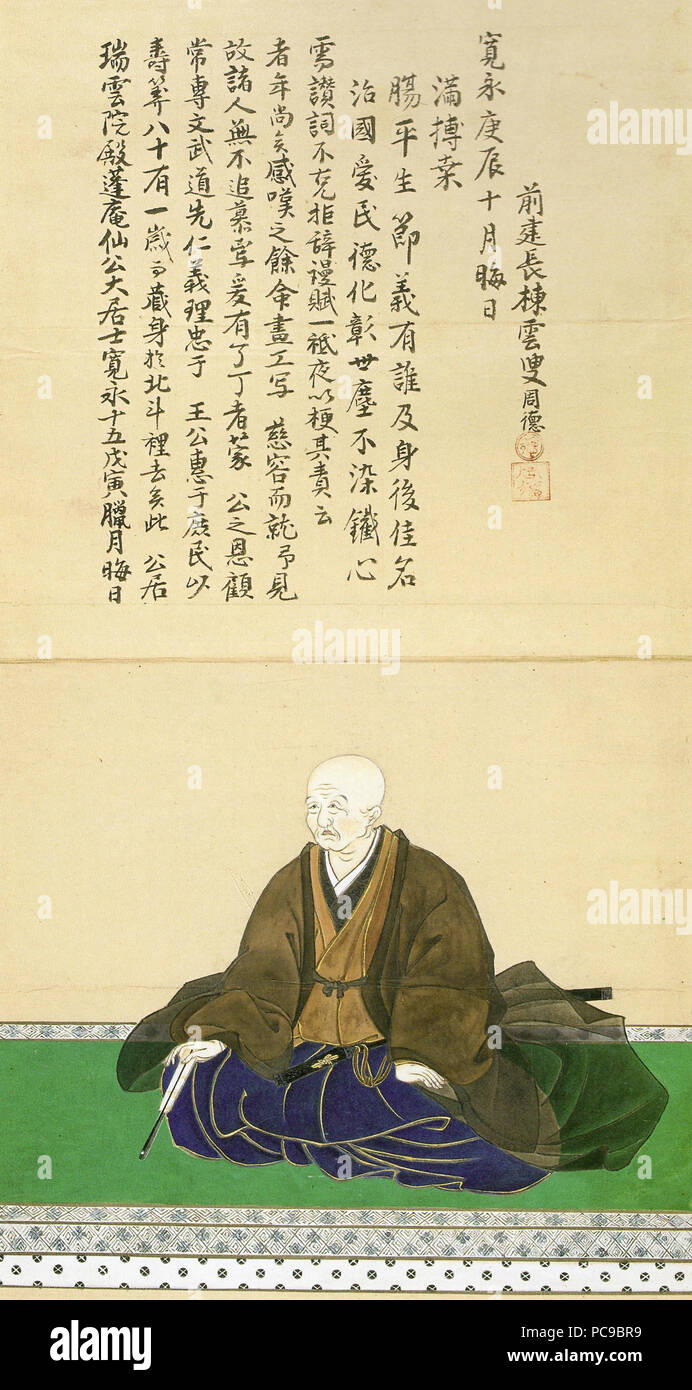 瑞雲院殿蓬庵仙公大居士寛永十五戊寅臘月晦日
壽筭八十有一歳而藏身於北斗裡去矣此 公居
常專文武道先仁義理忠于 王公惠于庶民以
故諸人無不追慕焉爰有了丁者蒙 公之恩顧
者年尚矣感嘆之餘命畫工写 慈容而就予見
需讃詞不克拒辞謾賦一祗夜以梗其責云
治國愛民德化彰世塵不染鐵心
膓平生節義有誰及身後佳名
滿搏桒
寛永庚辰十月晦日
前建長棟雲叟周德
alamy
alamy
Image ID: PC9BR9
www.alamy.com